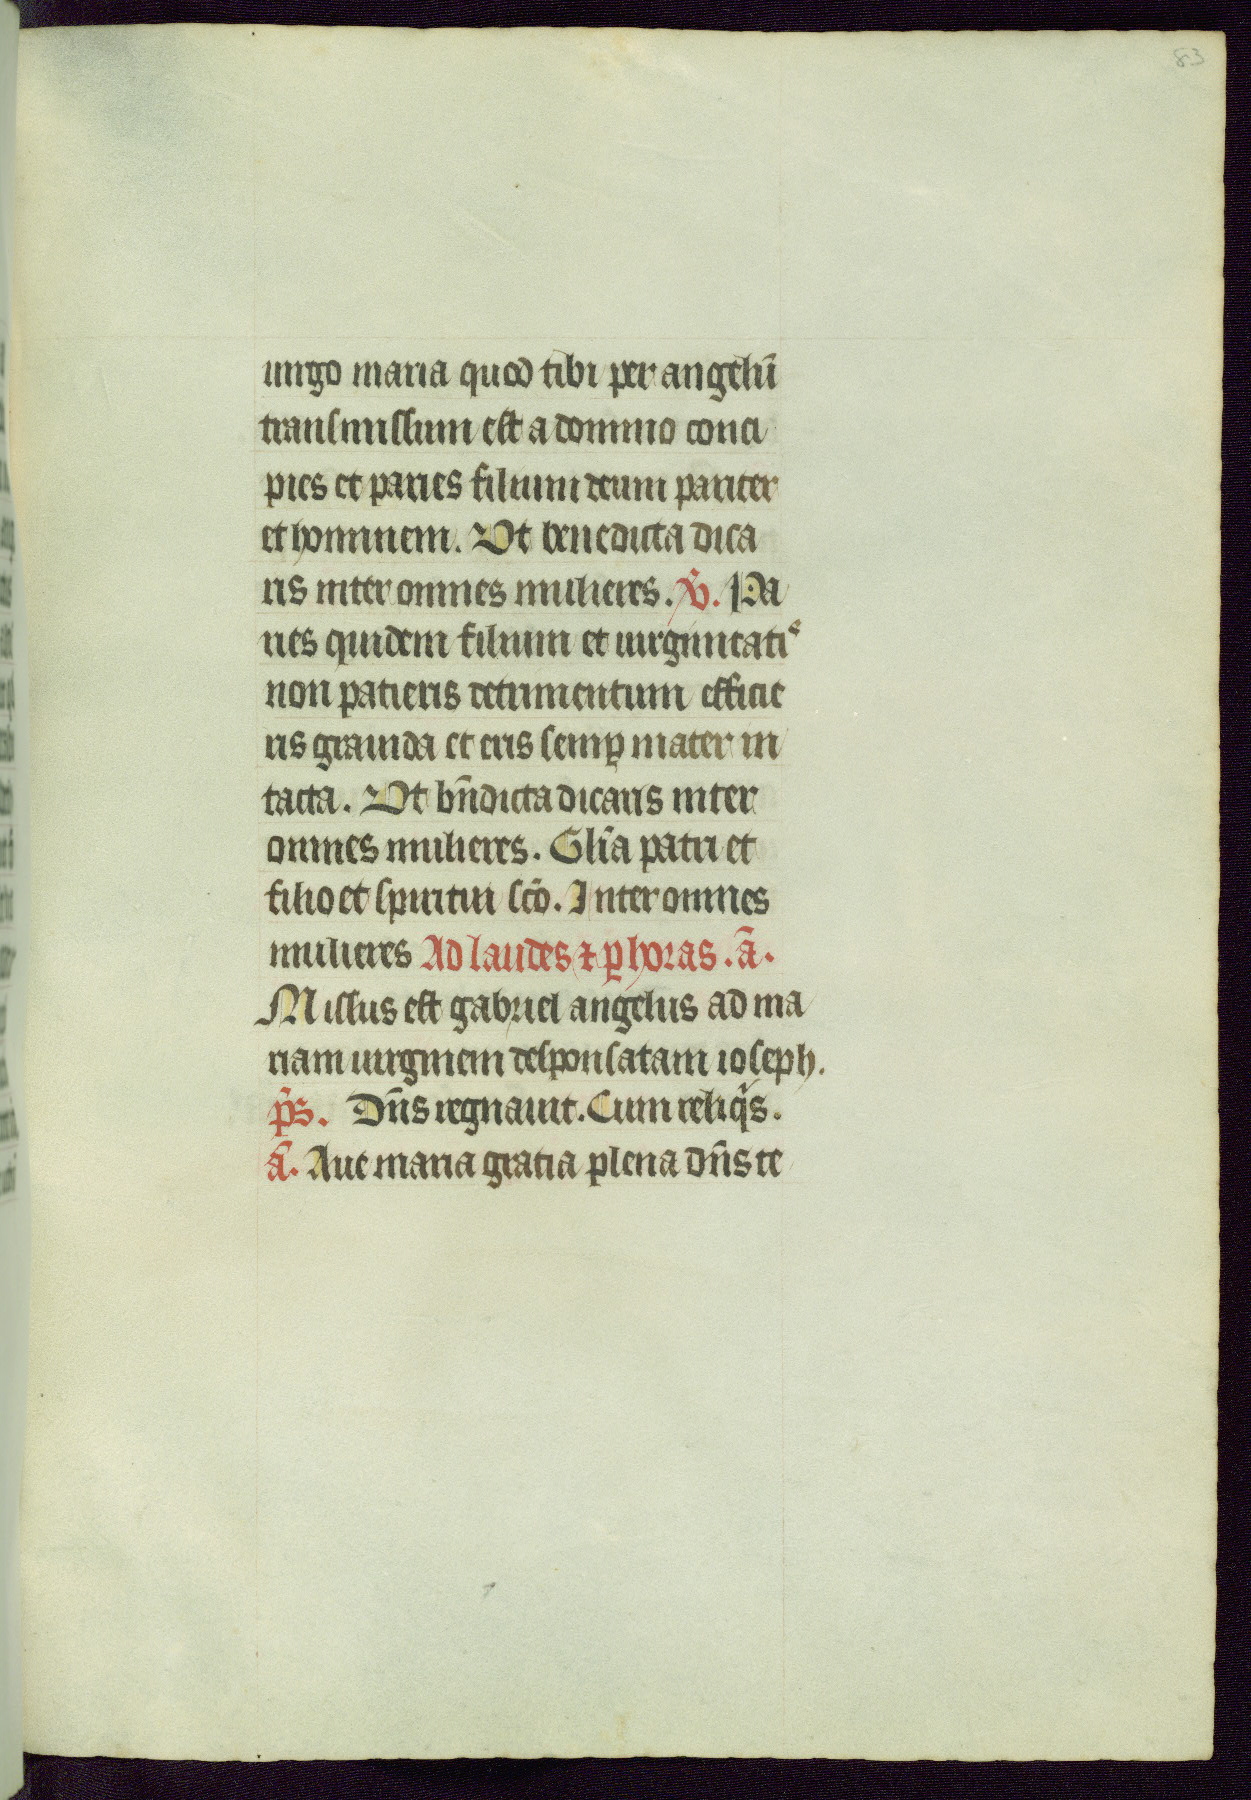 83
uirgo maria quod tibi per angelū
transmissum est a domino conci
pies et paries filium deum pariter
et hominem. Ut benedicta dica
ris inter omnes mulieres. V̄. Pa
ries quidem filium et uirginitatis
non patieris detrimentum efficie
ris grauida et eris semꝑ mater in
tacta. Ut bn̄dicta dicaris inter
omnes mulieres. Glīa patri et
filio et spiritui scō. Inter omnes
mulieres Ad laudes ⁊ ꝑ horas. ā.
Missus est gabriel angelus ad ma
riam uirginem desponsatam ioseph.
p̄s. Dn̄s regnauit. Cum reliqⁱs.
ā. Aue maria gratia plena dn̄s te